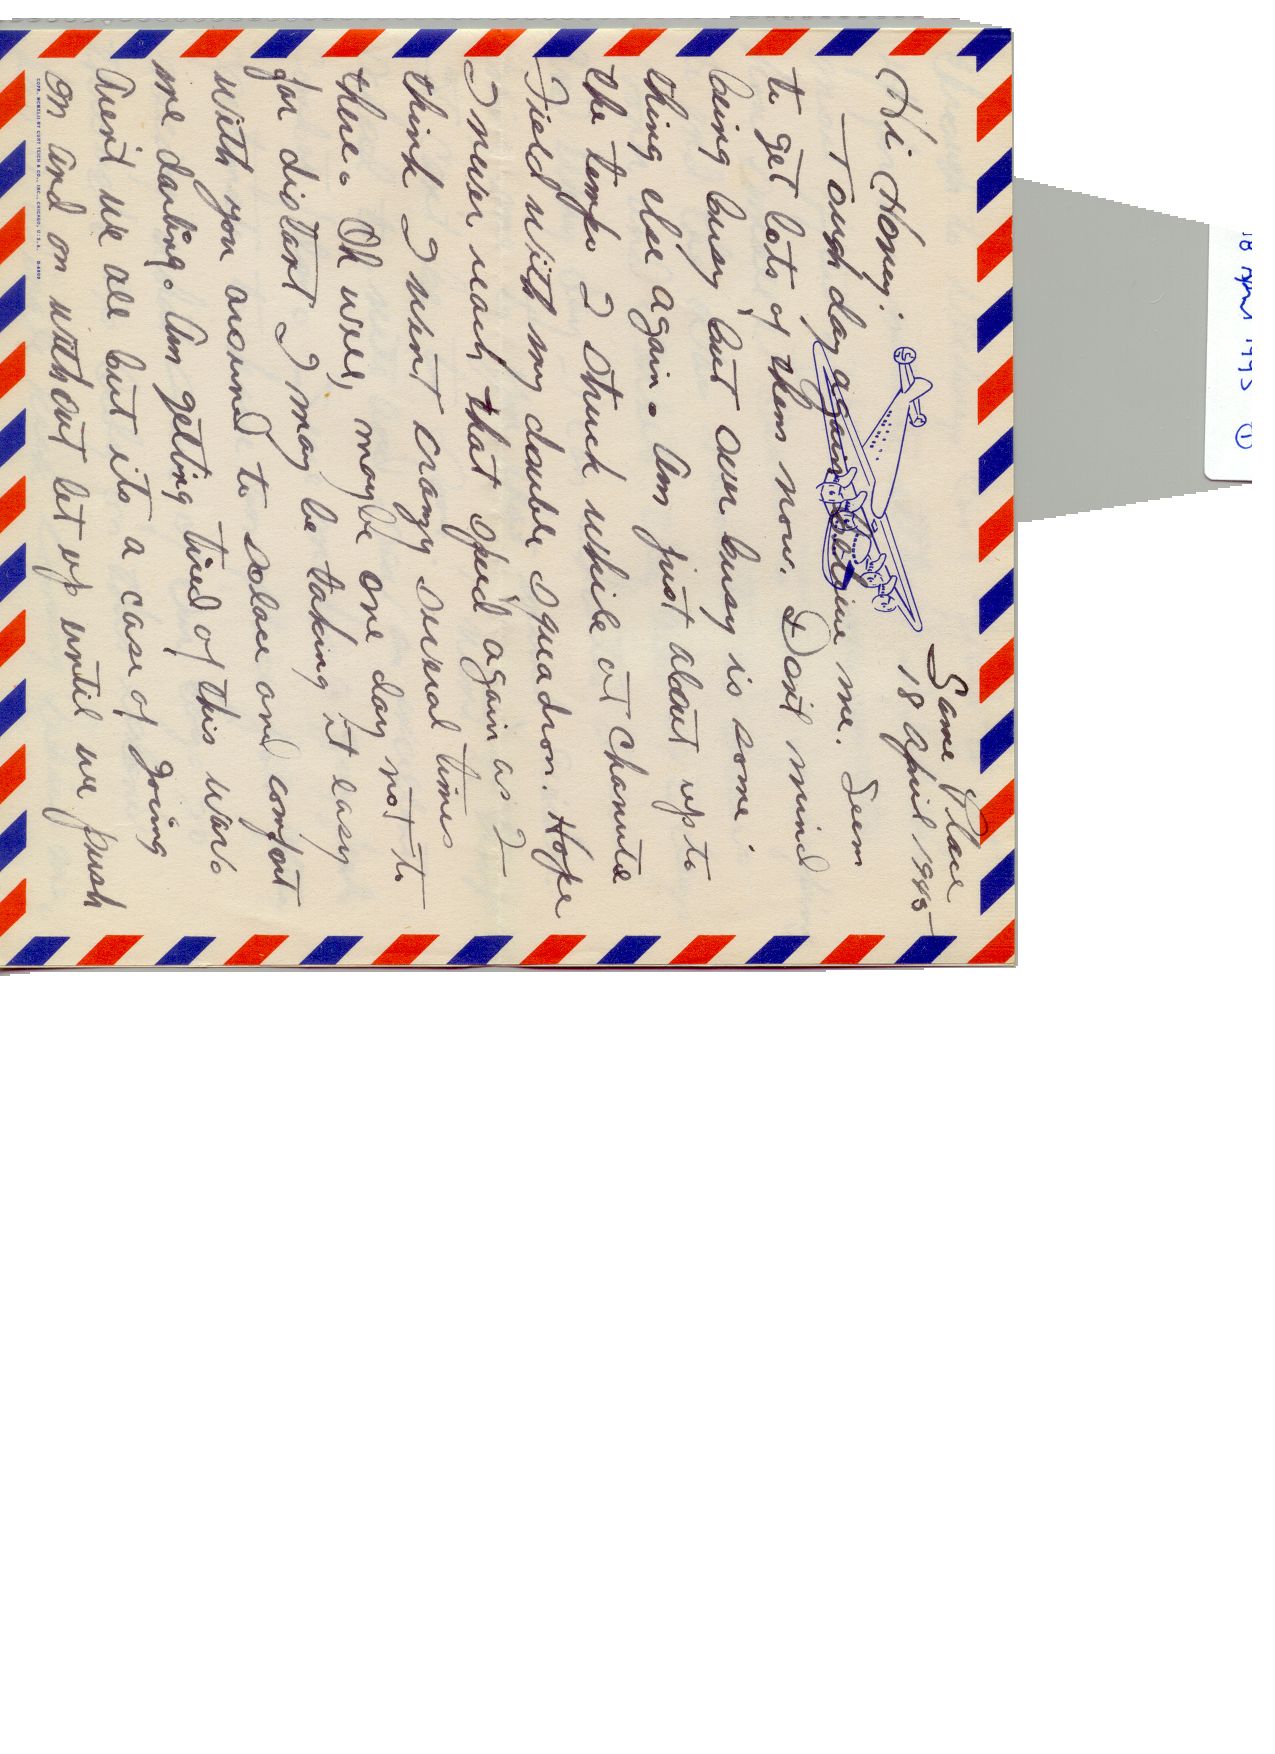 Same Place
18 April 1945
Hi Honey:
Tough day again believe me. Seem
to get lots of them now. Don't mind
being busy but over busy is some
thing else again. Am just about up to
the tempo I struck while at Chanute
Field with my double squadron. Hope
I never reach that speed again as I
think I went crazy several times
there. Oh well, maybe one day not to
far distant I may be taking it easy
with you around to solace and comfort
me darling. Am getting tired of this war.
Aren't we all but its a case of going
on and on without let up until we push
COPR. MCMXLIII BY CURT TEICH & CO., INC., CHICAGO, U.S.A.
18 April 1945 ①